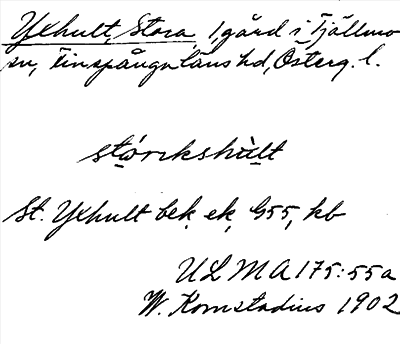 Yxhult, Stora, 1 gård i Tjällmo
sn, Finspånga läns hd, Österg. l.
stórikshùlt
St. Yxhult bek. ek. G55, kb
ULMA 175:55a
W. Komstadius 1902